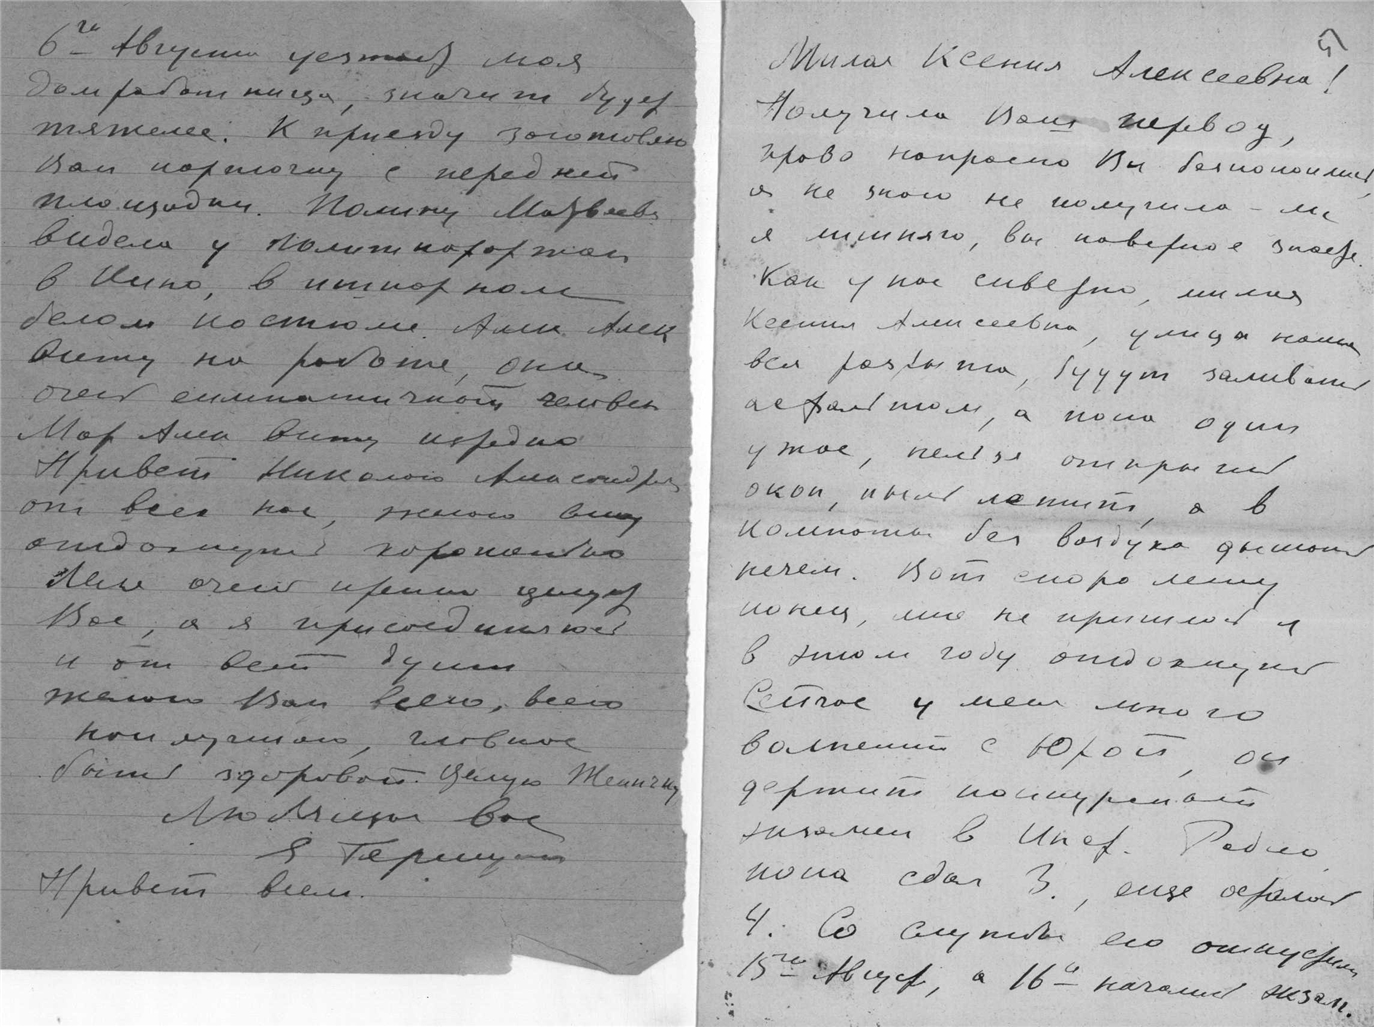 6го Августа уезжает моя
домработница, значит будет
тяжелее. К приезду заготовлю
Вам карточку с передней
площадки. Полину Матвеевн
видела у
в Кино, в шикарном
белом костюме Алек
вижу на работе, она
очень симпатичный человек
Мар Алек вижу изредка
Привет Николаю Александр
от всех нас, желаю ему
отдохнуть хорошенько
Леля очень крепко целует
Вас, а я присоединяюсь
и от всей души
желаю Вам всего, всего
наилучшаго, главное
быть здоровой. Целую Женичку
Любящая Вас
Е
Привет всем.
5
Милая Ксения Алексеевна!
Получила Ваш перевод,
право напрасно Вы безпокоились,
я не знаю не получила-ли
я лишняго, вы наверное знаете.
Как у нас скверно, милая
Ксения Алексеевна, улица наша
вся разрыта, будут заливать
асфальтом, а пока один
ужас, нельзя открыть
окон, пыль летит, а в
комнатах без воздуха дышать
нечем. Вот скоро лету
конец, мне не пришлось
в этом году отдохнуть
Сейчас у меня много
волнений с Юрой, он
держит конкурсный
экзамен в Инст. Радио,
пока сдал 3., еще осталось
4. Со службы его отпустили
15го Август, а 16и начались экзам.